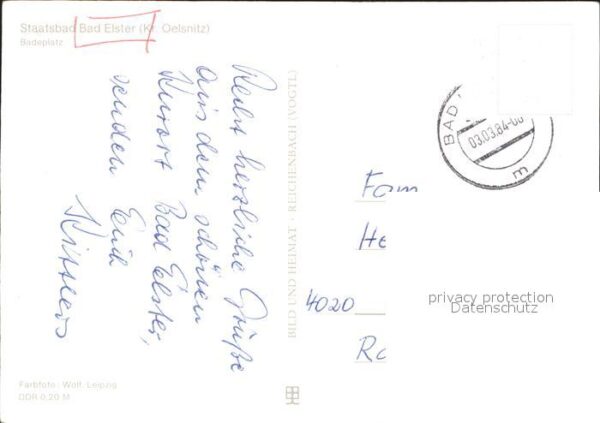 Staatsbad Bad Elster (Kr. Oelsnitz)
Badeplatz
Recht herzliche Grüße
aus dem schönen
Kurort Bad Elster,
senden Euch
BILD UND HEIMAT · REICHENBACH (VOGTL)
BAD
03.03.84-00
m
Fam
He
4020
Ra
privacy protection
Datenschutz
Farbfoto: Wolf, Leipzig
DDR 0,20 M